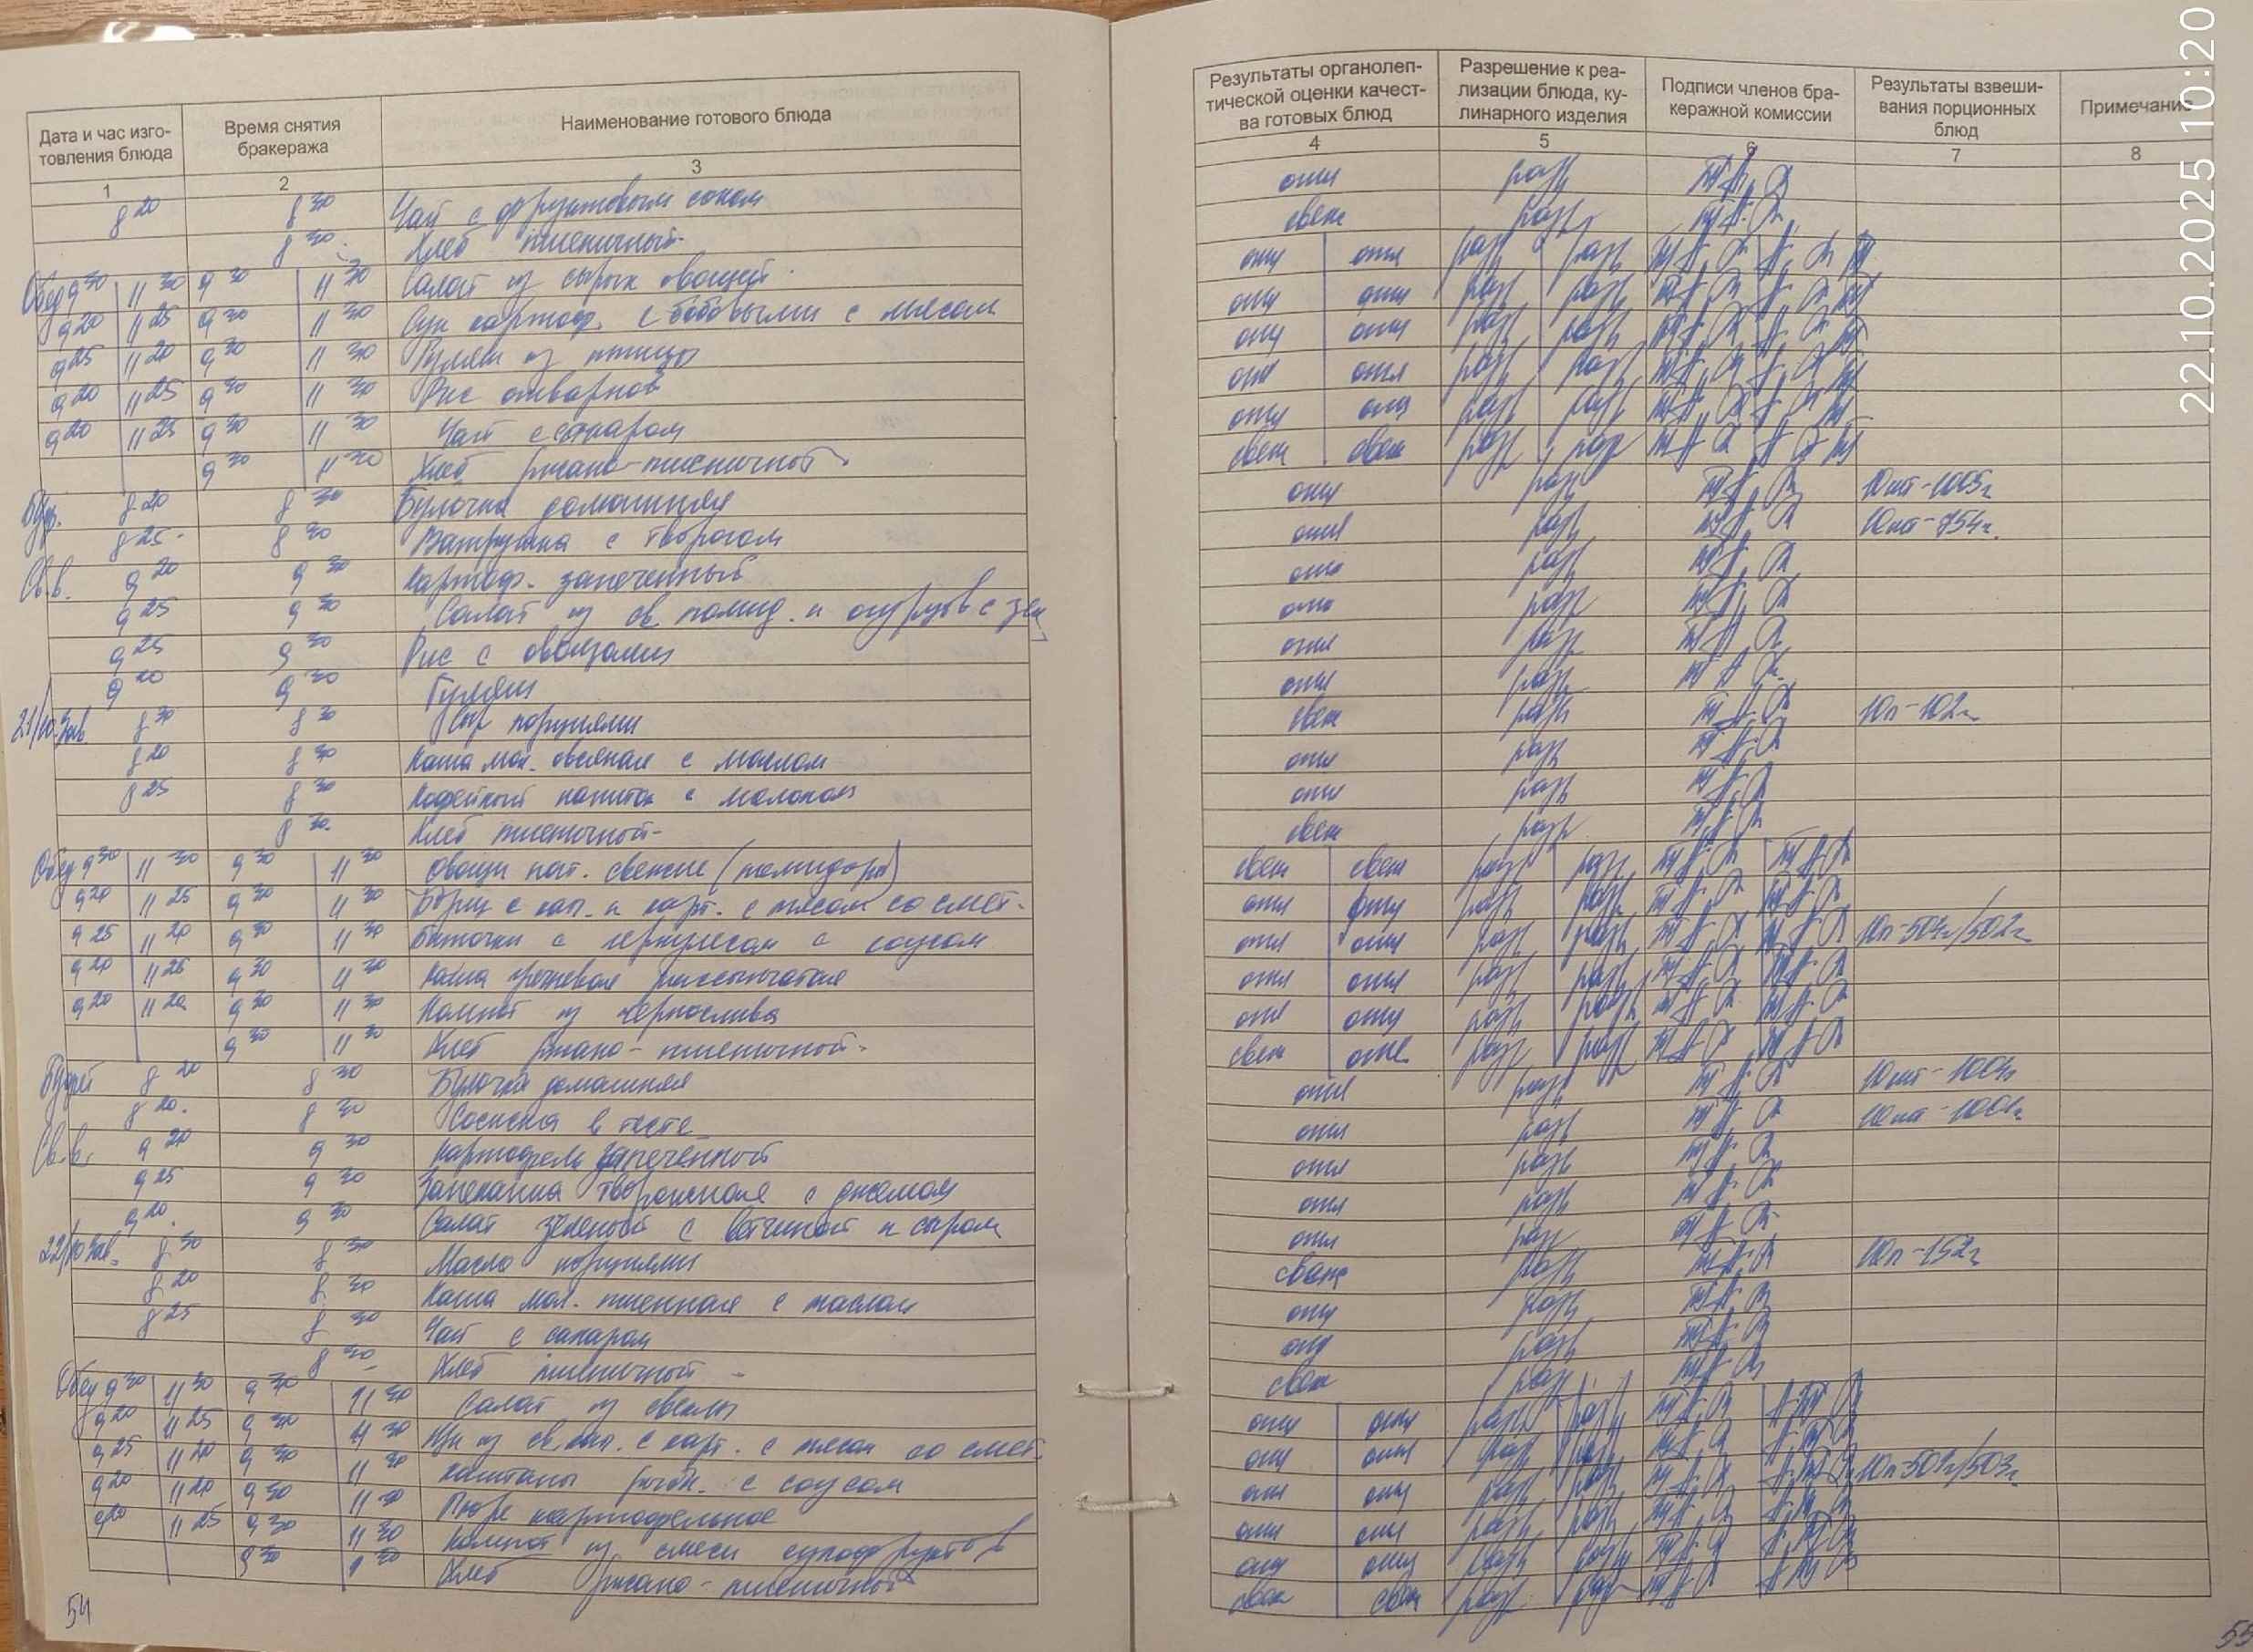 Дата и час изго-
товления блюда
Время снятия
бракеража
Наименование готового блюда
1 2 3
8 20 8 30 Чай с фруктовым соком
8 30 Хлеб пшеничный
Обед 9 30 11 30 9 30 11 30 Салат из сырых овощей
9 20 11 25 9 30 11 30 Суп картоф. с бобовыми с мясом
9 25 11 20 9 30 11 30 Гуляш из птицы
9 20 11 25 9 30 11 30 Рис отварной
9 20 11 25 9 30 11 30 Чай с сахаром
9 30 11 30 Хлеб ржано-пшеничной
Буф. 8 20 8 30 Булочка домашняя
8 25 8 30 Ватрушка с творогом
Св.в. 9 20 9 30 Картоф. запеченный
9 25 9 30 Салат из св. помид. и огурцов с зел
9 25 9 30 Рис с овощами
9 20 9 30 Гуляш
21/10 Зав. 8 30 8 30 Сыр порциями
8 20 8 30 Каша мол. овсяная с маслом
8 25 8 30 Кофейный напиток с молоком
8 30 Хлеб пшеничной
Обед 9 30 11 30 9 30 11 30 Овощи нат. свежие (помидоры)
9 20 11 25 9 30 11 30 Борщ с кап. и карт. с мясом со смет.
9 25 11 20 9 30 11 30 Биточки с геркулесом с соусом
9 20 11 25 9 30 11 30 Каша гречневая рассыпчатая
9 20 11 20 9 30 11 30 Компот из чернослива
9 30 11 30 Хлеб ржано-пшеничной
Буфет 8 20 8 30 Булочка домашняя
8 20 8 30 Сосиска в тесте
Св.в. 9 20 9 30 Картофель запеченной
9 25 9 30 Запеканка творожная с джемом
9 20 9 30 Салат зеленый с ветчиной и сыром
22/10 Зав. 8 30 8 30 Масло порциями
8 20 8 30 Каша мол. пшенная с маслом
8 25 8 30 Чай с сахаром
8 30 Хлеб пшеничной
Обед 9 30 11 30 9 30 11 30 Салат из свеклы
9 20 11 25 9 30 11 30 Щи из св. кап. с карт. с мясом со смет.
9 25 11 20 9 30 11 30 Каштаны рыбн. с соусом
9 20 11 20 9 30 11 30 Пюре картофельное
9 20 11 25 9 30 11 30 Компот из смеси сухофруктов
9 30 11 30 Хлеб ржано-пшеничной
54
Результаты органолеп-
тической оценки качест-
ва готовых блюд
Разрешение к реа-
лизации блюда, ку-
линарного изделия
Подписи членов бра-
керажной комиссии
Результаты взвеши-
вания порционных
блюд
Примечание
4 5 6 7 8
отл разр
свеж разр
отл отл разр разр
отл отл разр разр
отл отл разр разр
отл отл разр разр
отл отл разр разр
свеж свеж разр разр
отл разр 10шт-1005г
отл разр 10шт-754г.
отл разр
отл разр
отл разр
отл разр
свеж разр 10п-102г
отл разр
отл разр
свеж разр
свеж свеж разр разр
отл отл разр разр
отл отл разр разр 10п-504г/502г
отл отл разр разр
отл отл разр разр
свеж отл разр разр
отл разр 10шт-1004г
отл разр 10шт-1001г
отл разр
отл разр
отл разр
свеж разр 10п-152г
отл разр
отл разр
свеж разр
отл отл разр разр
отл отл разр разр
отл отл разр разр 10п-501г/503г
отл отл разр разр
отл отл разр разр
свеж свеж разр разр
55
22.10.2025 10:20